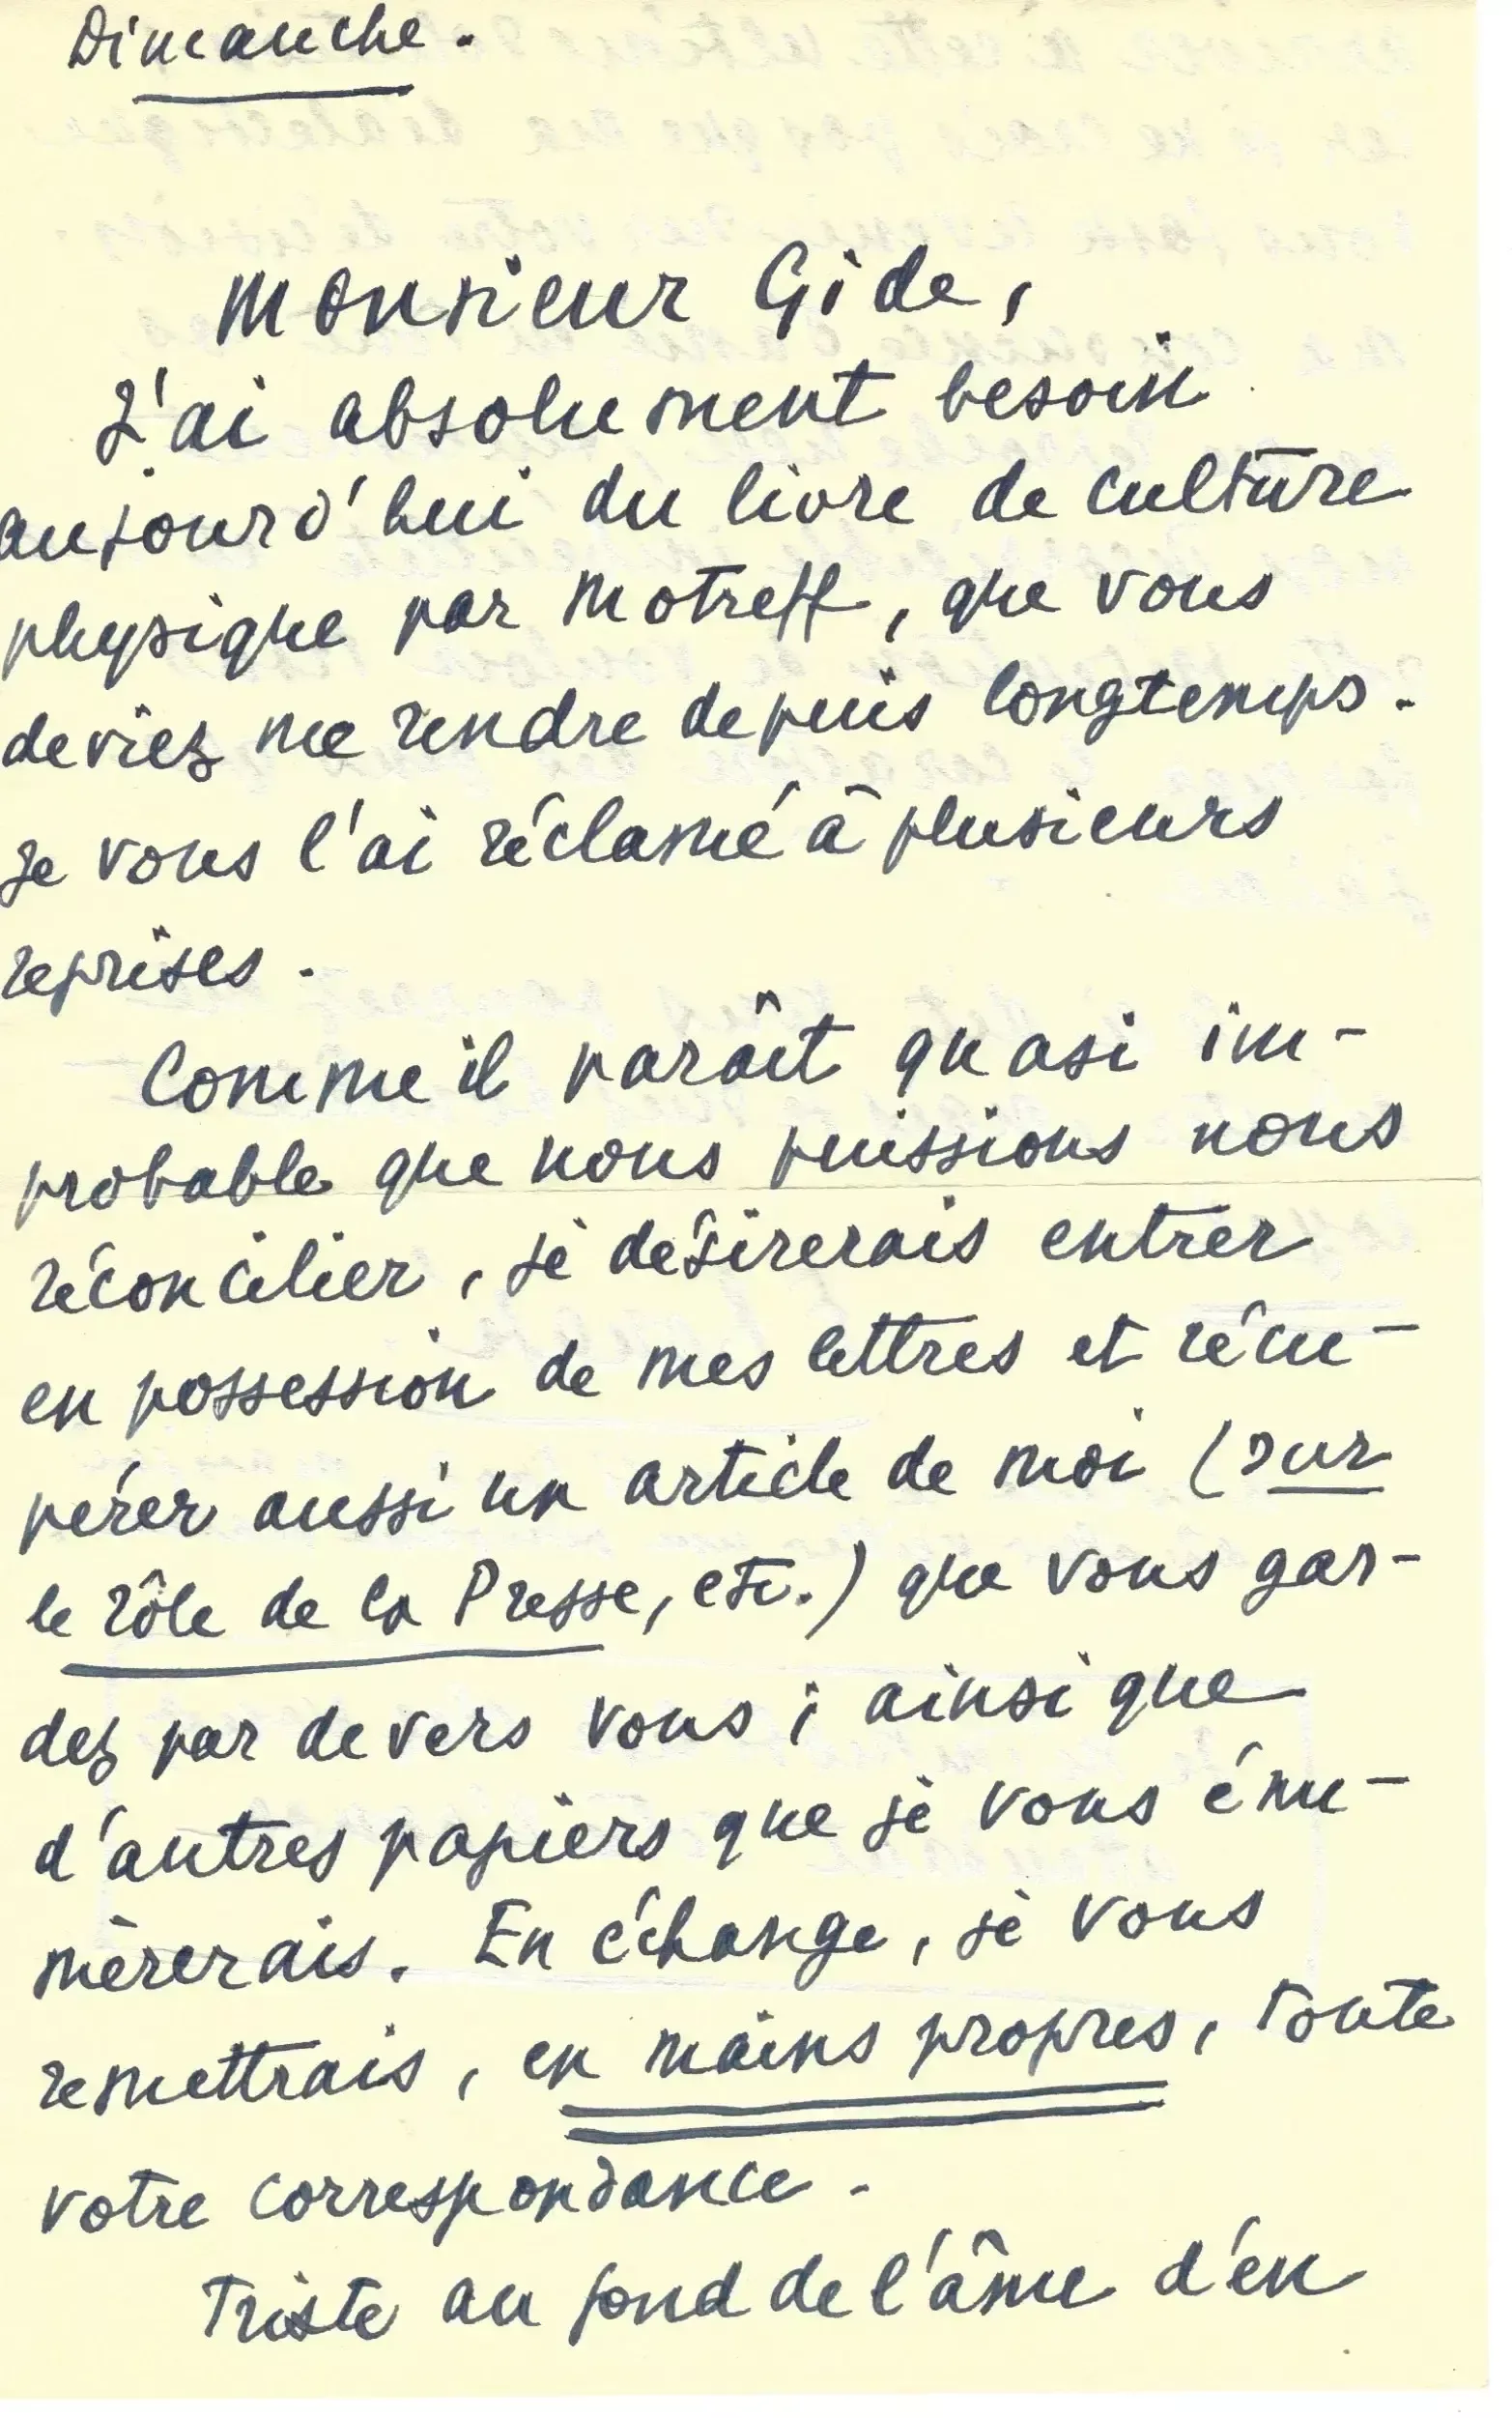 Dimanche.
Monsieur Gide,
J'ai absolument besoin
aujourd'hui du livre de culture
physique par Motreff, que vous
deviez me rendre depuis longtemps.
Je vous l'ai réclamé à plusieurs
reprises.
Comme il paraît quasi im-
probable que nous puissions nous
réconcilier, je désirerais entrer
en possession de mes lettres et récu-
pérer aussi un article de moi (sur
le rôle de la Presse, etc.) que vous gar-
dez par devers vous; ainsi que
d'autres papiers que je vous énu-
mèrerais. En échange, je vous
remettrais, en mains propres, toute
votre correspondance.
Triste au fond de l'âme d'en